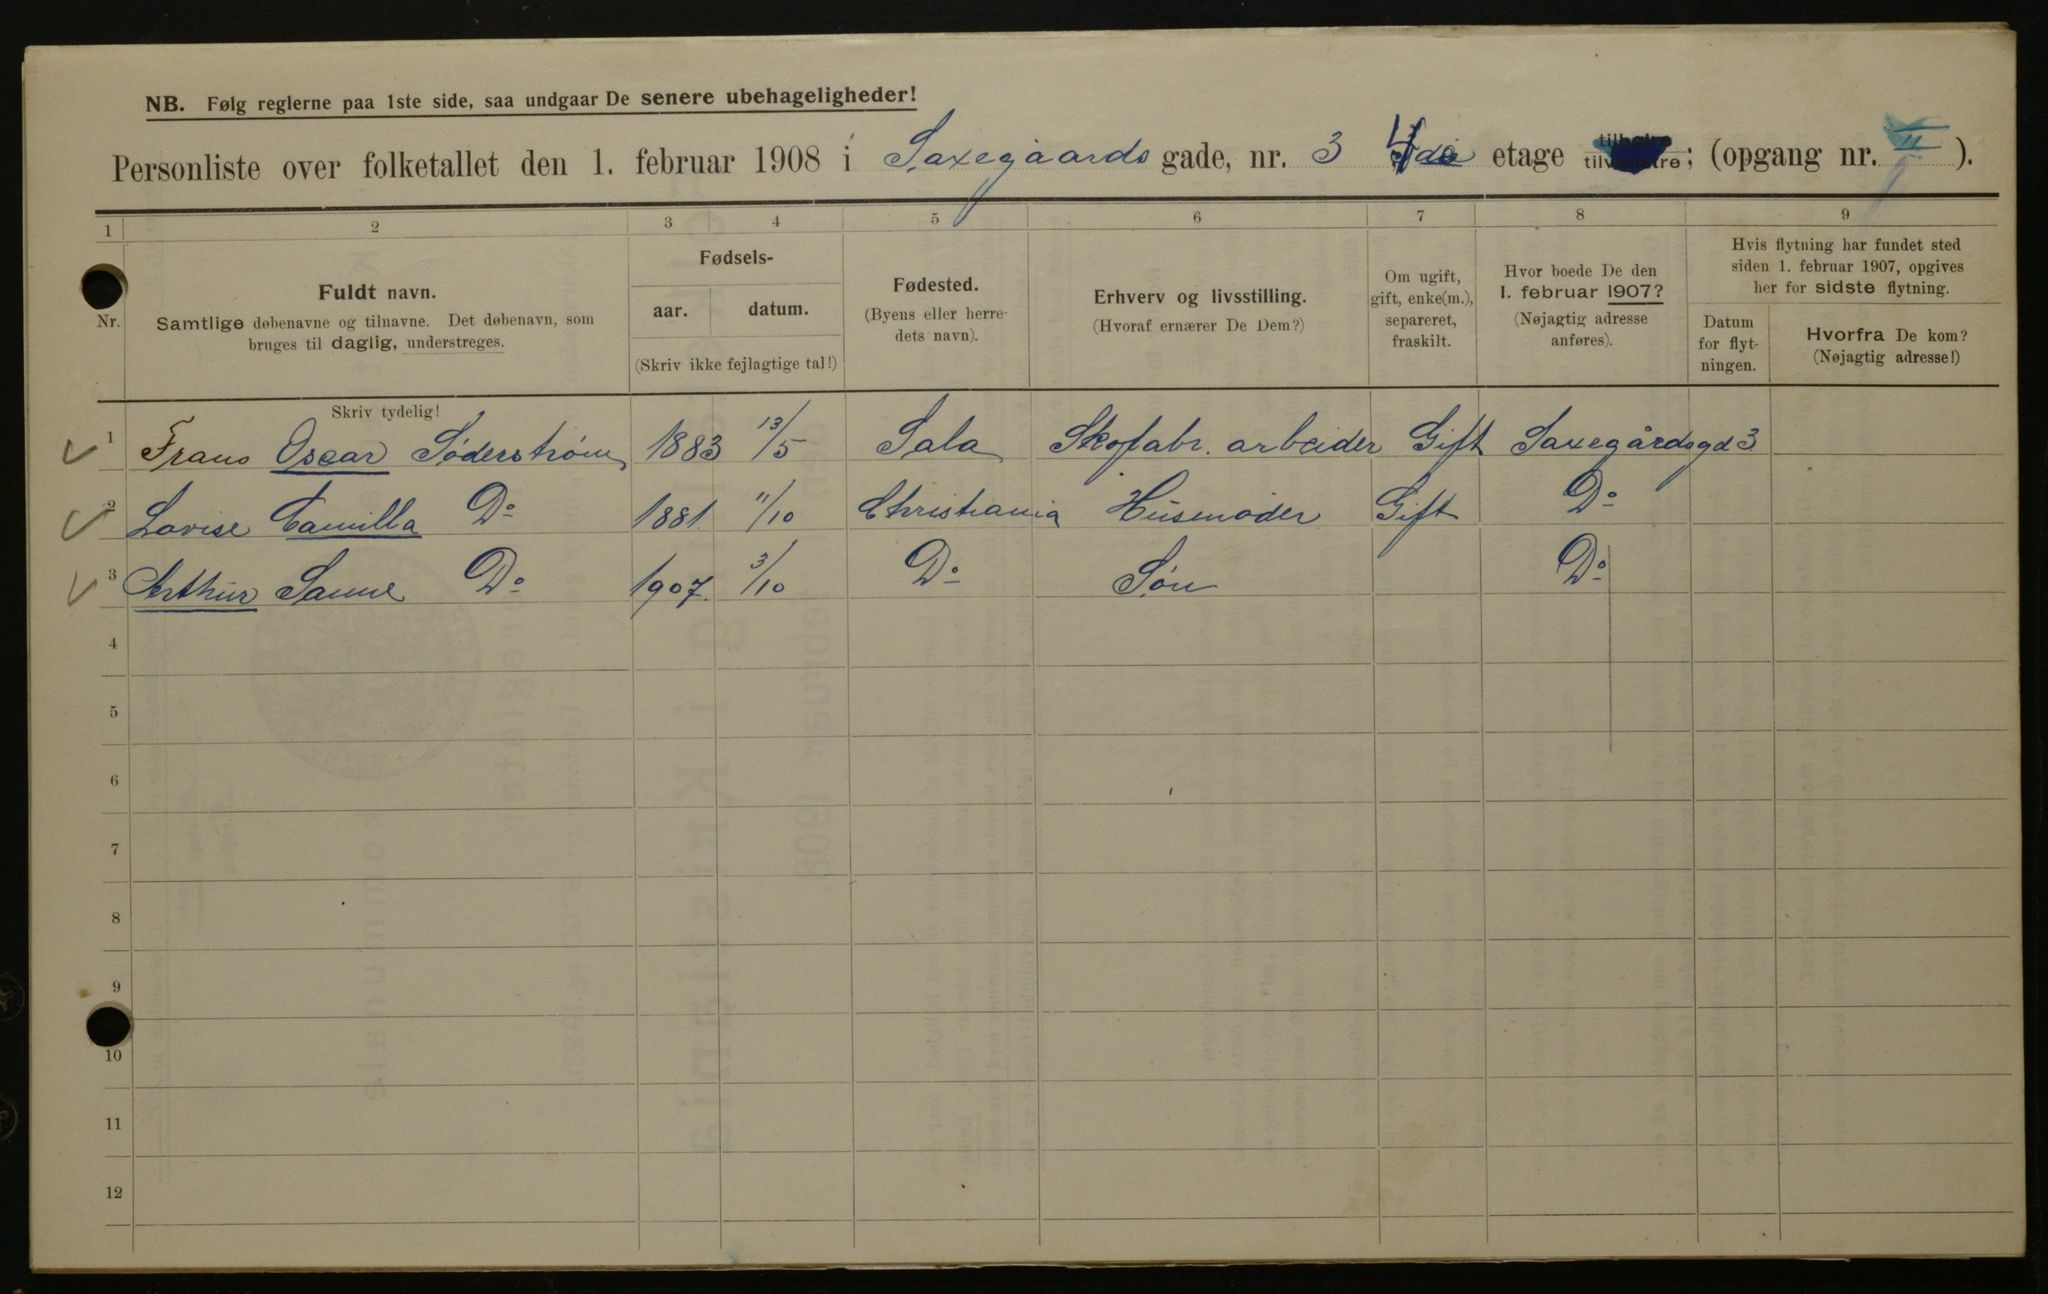 NB. Følg reglerne paa 1ste side, saa undgaar De senere ubehageligheder!
Personliste over folketallet den 1. februar 1908 i Saxegaards gade, nr. 3 4de etage ; (opgang nr. II ).
1 2 3 4 5 6 7 8 9
Nr.
Fuldt navn.
Samtlige døbenavne og tilnavne. Det døbenavn, som
bruges til daglig, understreges.
Skriv tydelig!
Fødsels-
aar. datum.
(Skriv ikke fejlagtige tal!)
Fødested.
(Byens eller herre-
dets navn).
Erhverv og livsstilling.
(Hvoraf ernærer De Dem?)
Om ugift,
gift, enke(m.),
separeret,
fraskilt.
Hvor boede De den
1. februar 1907?
(Nøjagtig adresse
anføres).
Hvis flytning har fundet sted
siden 1. februar 1907, opgives
her for sidste flytning.
Datum
for flyt-
ningen.
Hvorfra De kom?
(Nøjagtig adresse!)
1 Frans Oscar Søderstrøm 1883 13/5 Sala Skofabr. arbeider Gift Saxegårdsgd 3
2 Lovise Camilla Do 1881. 11/10 Christiania Husmoder Gift Do
3 Arthur Sanne Do 1907. 3/10 Do Søn Do
4
5
6
7
8
9
10
11
12